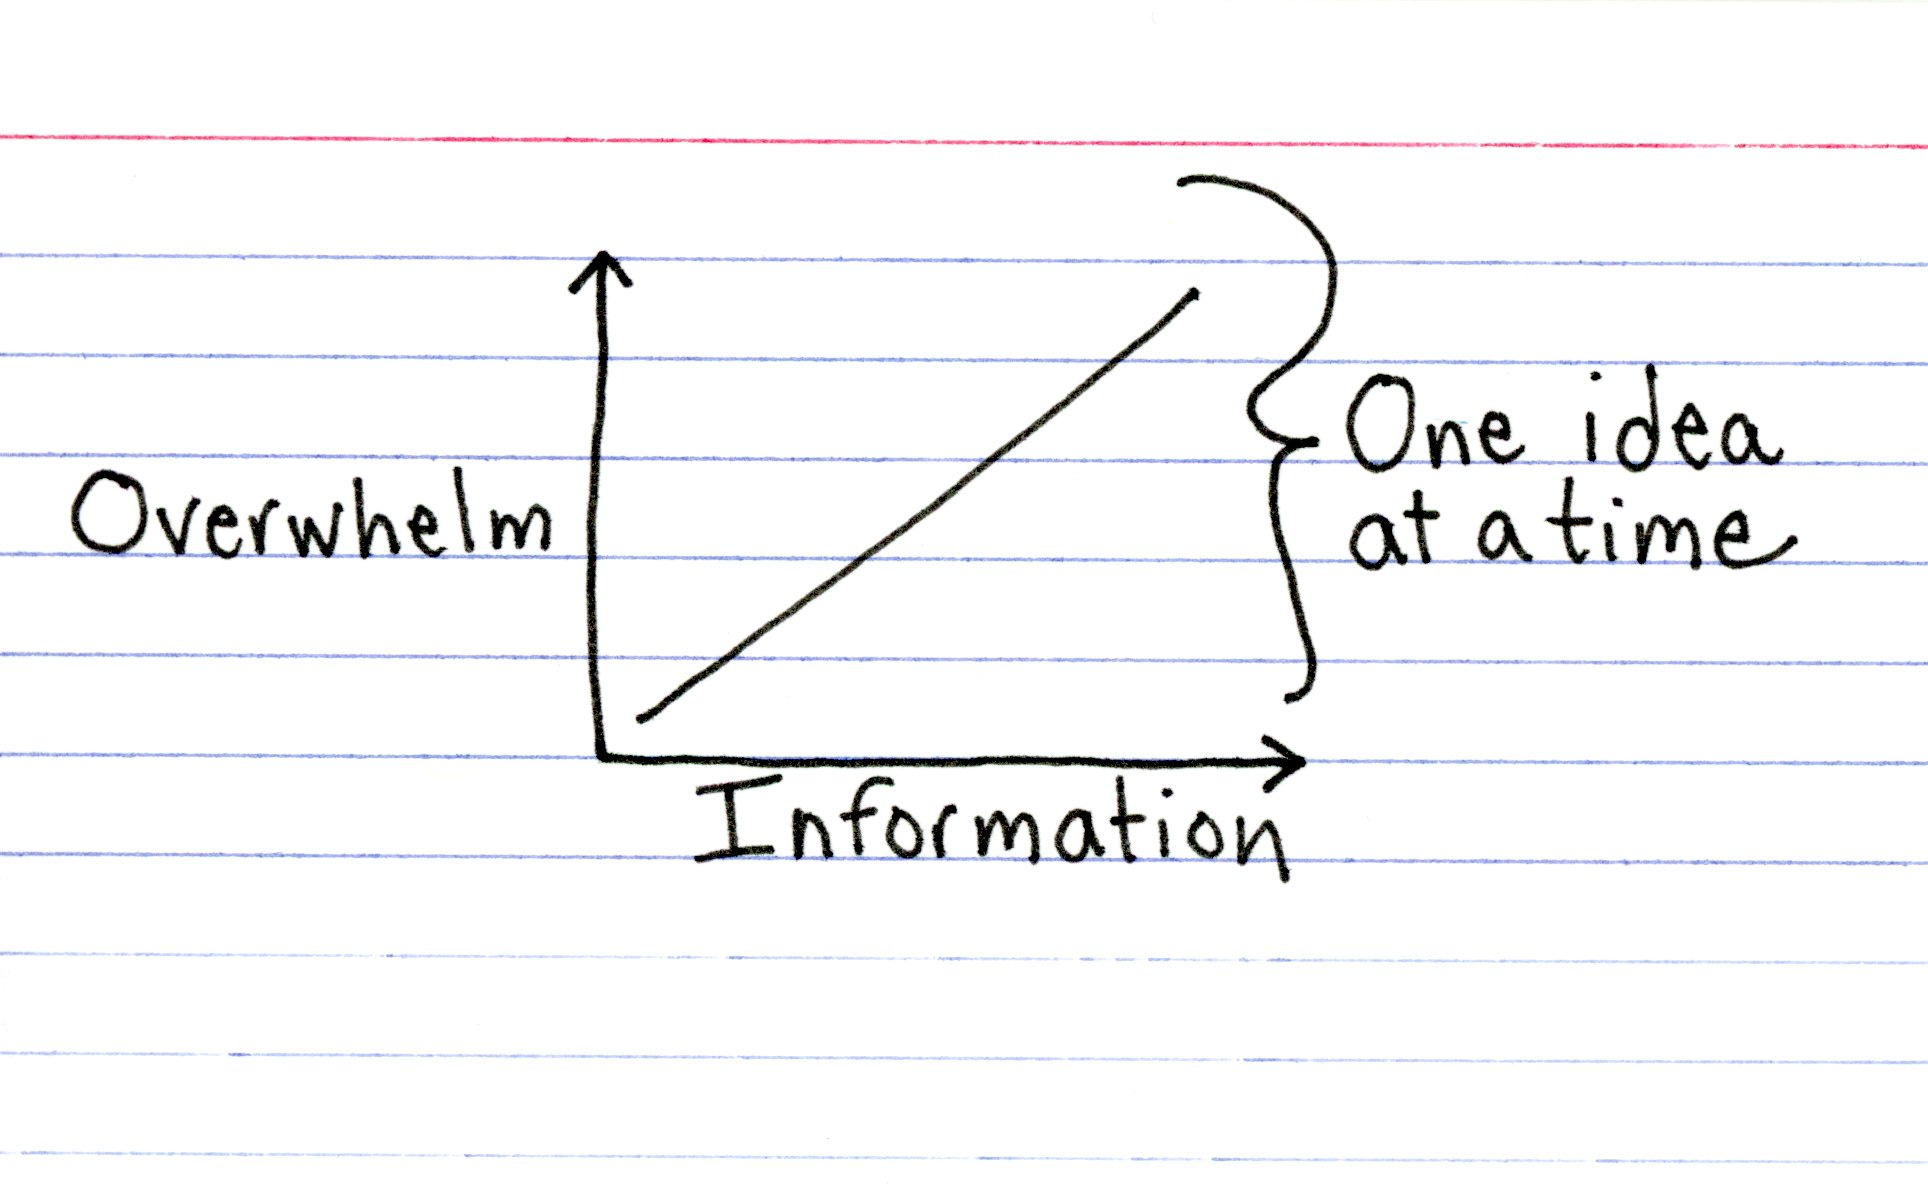 Overwhelm
One idea
at a time
Information